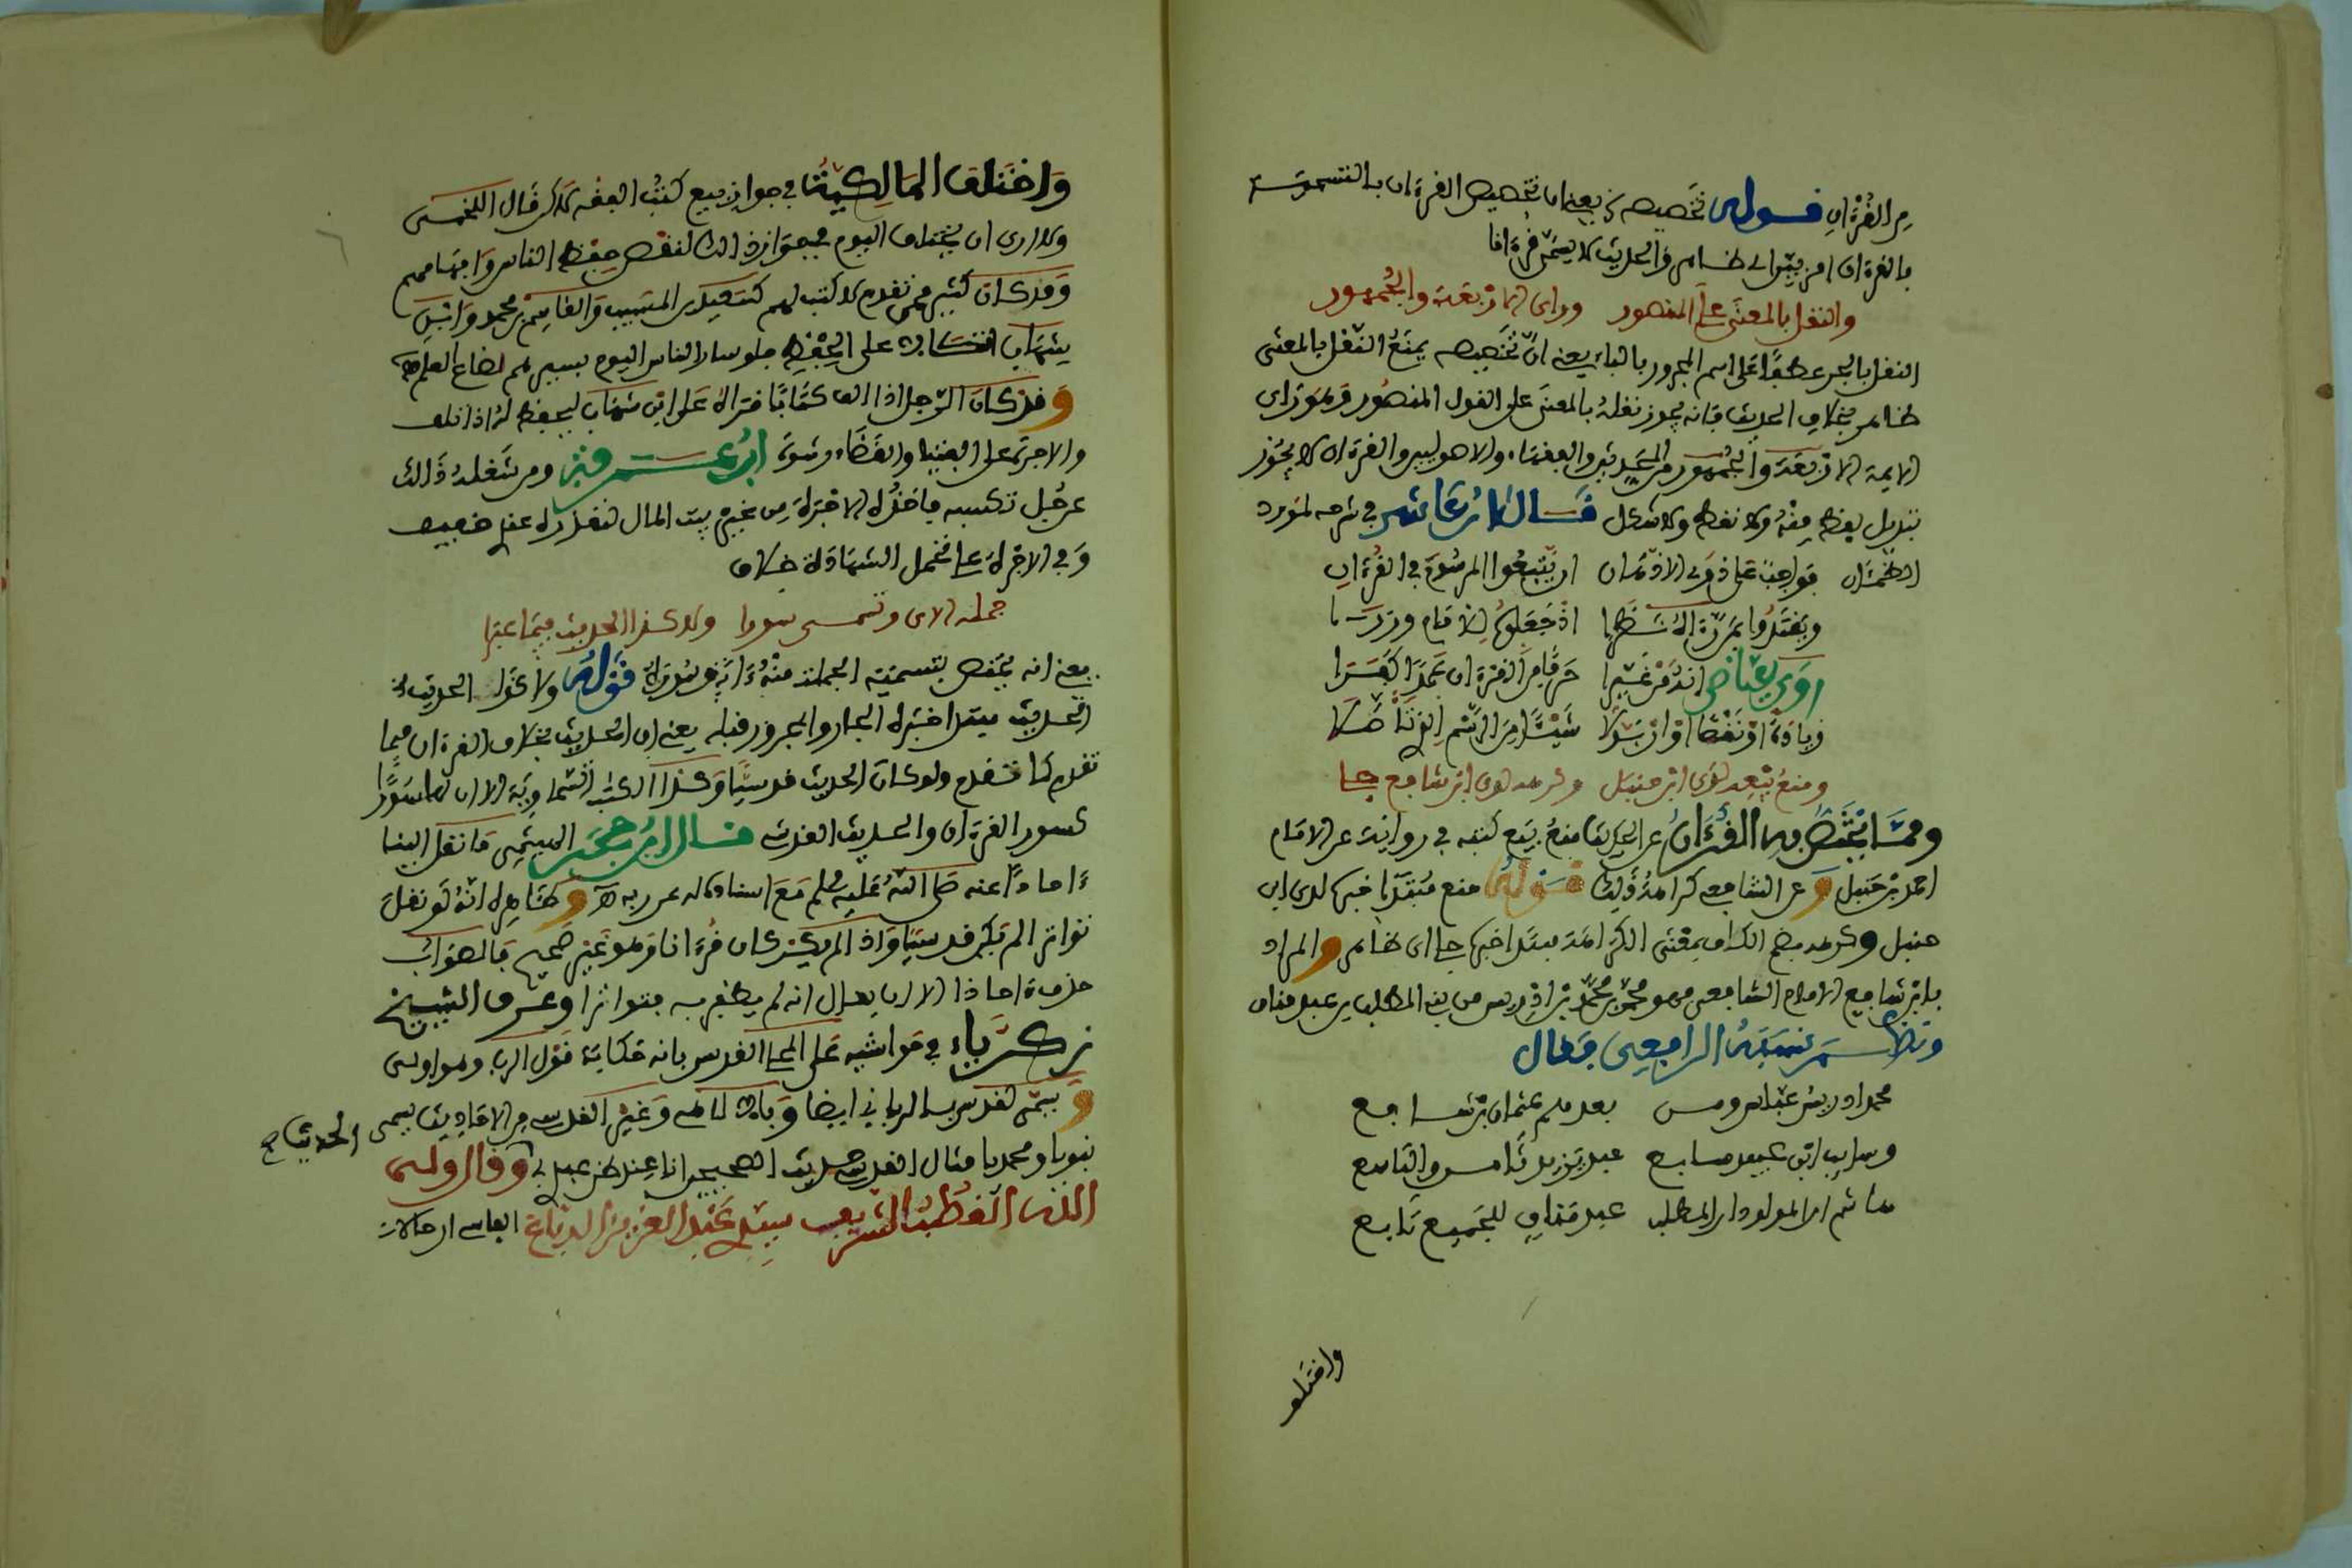 من القرءان قوله تخصيصه يعني ان تخصيص القرءان بالتسمية
بالقرءان امر بين اى ظاهر والحديث لا يسمى قرءانا
والنقل بالمعنى على المنصور وراى الاربعة والجمهور
النقل بالجر عطفا على اسم المجرور بالباء يعنى ان تخصيصه بمنع النقل بالمعنى
ظاهر بخلاف الحديث فانه يجوز نقله بالمعنى على القول المنصور وهو راى
الايمة الاربعة والجمهور من المحدثين والفقهاء والاصوليين والقرءان لا يجوز
تبديل لفظ منه ولا نقطه ولا شكل قال ابن عاشر في شرحه لمورد
الظمئان فواجب على ذوى الاذهان ان يتبعوا المرسوم في القرءان
ويقتدوا بمن رءاه نظرا اذ جعلوه للانام وزرا
روى عياض انه من غيرا حرفا من القرءان عمدا كفرا
زيادة او نقصا او ان بدلا شيئا من الرسم الذي تأصلا
ومنع بيعه لدى ابن حنبل وكرهه لدى ابن شافع جلى
ومما يختص به القرءان عن الحديث منع بيع كتبه في رواية عن الامام
احمد بن حنبل وعن الشافعي كراهة ذلك قوله منع مبتدا خبره لدى ابن
حنبل وكرهه بضم الكاف بمعنى الكراهة مبتدا خبره جلى اى ظاهر والمراد
بابن شافع الامام الشافعي وهو محمد بن ادريس من بنى المطلب بن عبد مناف
ونظم نسبه الرافعي فقال
محمد ادريس عباس ومن بعدهم عثمان بن شافع
وسايب ابن عبيد سابع عبد يزيد ثامن والتاسع
هاشم المولود ابن المطلب عبد مناف للجميع تابع
واختلف
واختلف المالكية في جواز بيع كتب الفقه قال اللخمي
ولا ارى ان يختلف اليوم في جواز ذلك لنقص حفظ الناس وافهامهم
وقد كان كثير ممن تقدم لا كتب لهم كسعيد بن المسيب والقاسم بن محمد وابن
شهاب اتكالا على الحفظ فلو سار الناس اليوم بسيرهم لضاع العلم
وقد كان الرجل اذا الف كتابا قراه على ابن شهاب ليحفظه له اذا تلف
والاجرة على الفتيا والقضاء رشوة ابن عرفة ومن شغله ذلك
عن جل تكسبه فاخذه الاجرة من غير بيت المال لتعذره عندى خفيف
وفي الاجرة على تحمل الشهادة خلاف
جملة الاى وتسمى سورا ولا كذا الحديث فيما عبرا
يعنى انه يختص بتسمية الجملة منه ءاية وسورة قوله ولا كذا الحديث
الحديث مبتدا خبره الجار والمجرور قبله يعنى ان الحديث بخلاف القرءان فيما
تقدم كما تقدم ولو كان الحديث قدسيا وكذا الكتب السماوية الا ان لها سورا
كسور القرءان والحديث القدسي قال ابن حجر الهيثمي ما نقل الينا
ءاحادا عنه صلى الله عليه وسلم مع اسناده له عن ربه وظاهره انه لو نقل
تواتر الم يكن قدسيا واذا لم يكن كان قرءانا وهو غير صحيح فالصواب
حذف ءاحادا الا ان يقال انه لم يظفر به متواترا وعرف الشيخ
زكرياء في حواشيه على المحلى القدسي بانه حكاية قول الرب وهو اولى
ويسمى القدسي الربانى ايضا وبالالهى وغير القدسي من الاحاديث يسمى الحديث
نبويا ومحمديا مثال القدسي حديث الصحيحين انا عند ظن عبدى بى وقال ولى
الله القطب الشريف سيدى عبد العزيز الدباغ الفاسي